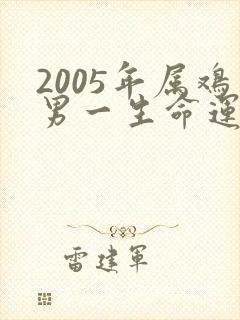 2005年属鸡
男一生命運
雷建軍